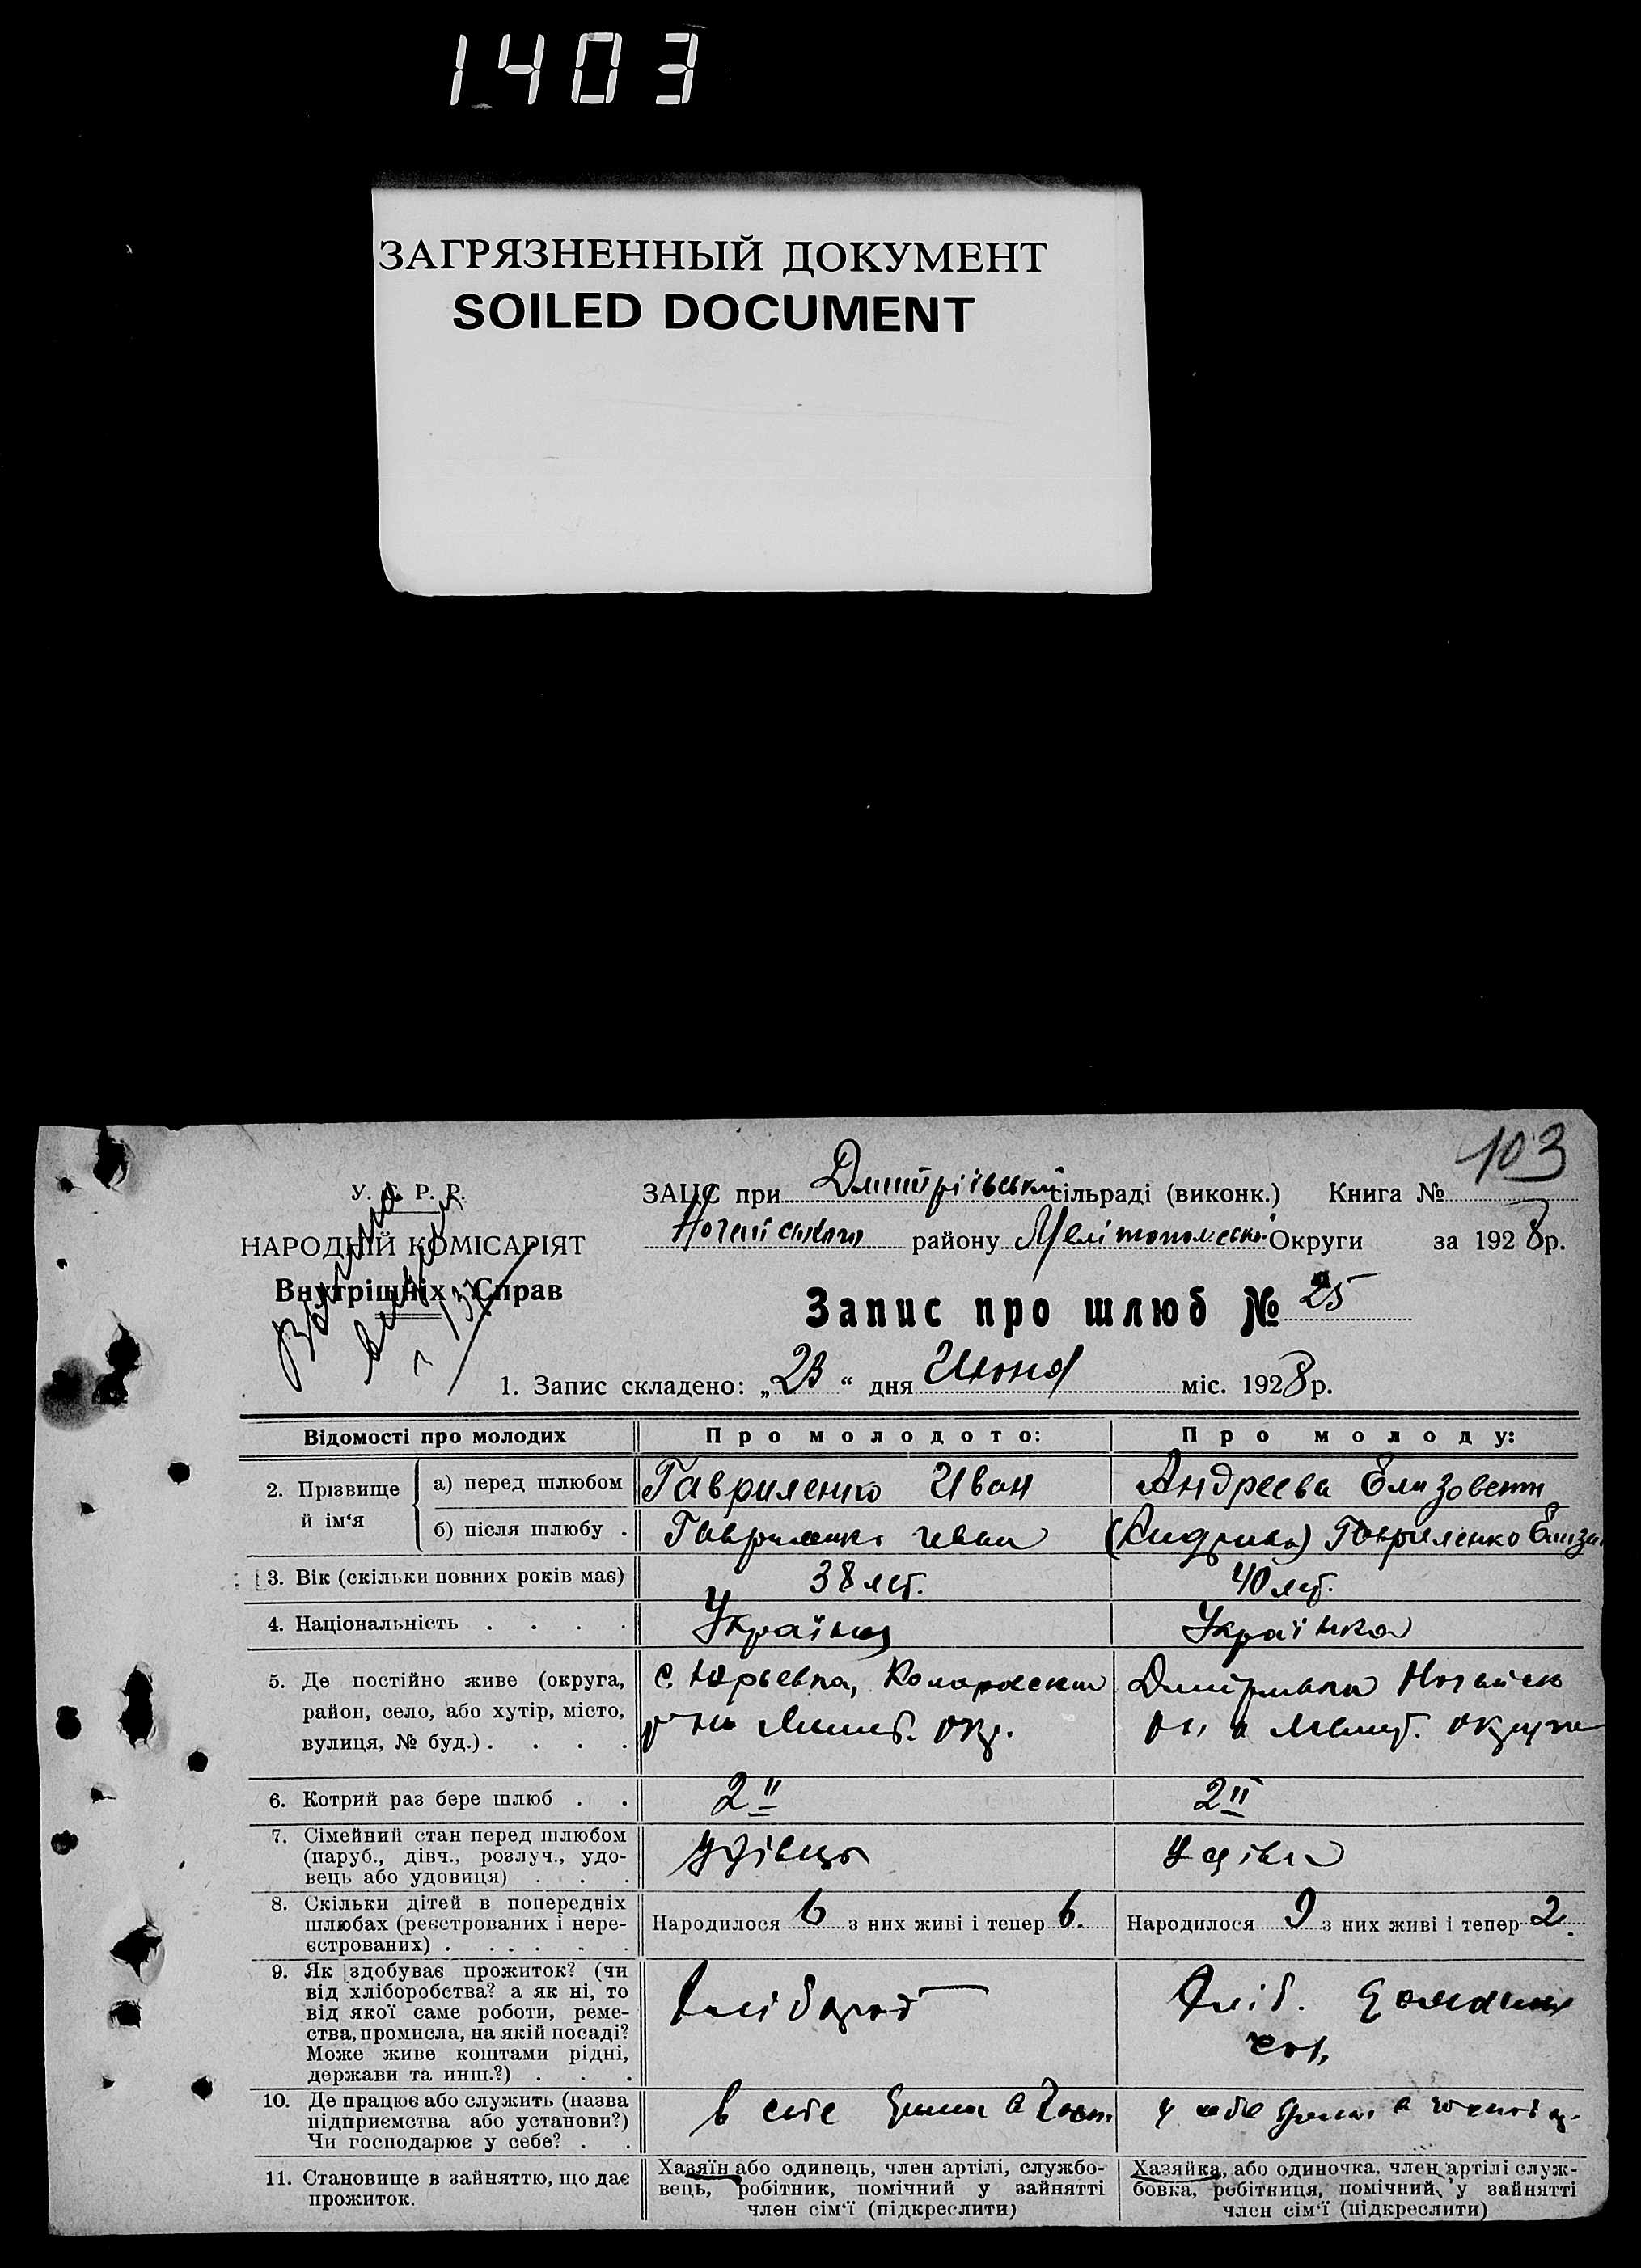 1403
ЗАГРЯЗНЕННЫЙ ДОКУМЕНТ
SOILED DOCUMENT
103
У. С. Р. Р.
НАРОДНІЙ КОМІСАРІЯТ
Внутрішніх Справ
ЗАЦС при Дмитріївській сільраді (виконк.) Книга №
району Мелітопольської Округи за 1928 р.
Запис про шлюб № 25
1. Запис складено: „23“ дня Июня міс. 1928 р.
Відомості про молодих
Про молодого:
Про молоду:
2. Прізвище й ім‘я
а) перед шлюбом
Гавриленко Иван
Андреева Елизовета
б) після шлюбу .
Гавриленко Иван
Гавриленко Елиза
3. Вік (скільки повних років має)
38 лет.
40 лет.
4. Національність . . . .
Українец
Українка
5. Де постійно живе (округа,
район, село, або хутір, місто,
вулиця, № буд.) . . . .
с. Юрьевка,
р-на Мелит. окр.
6. Котрий раз бере шлюб . .
2й
2й
7. Сімейний стан перед шлюбом
(паруб., дівч., розлуч., удо-
вець або удовиця) . . .
Удівець
Удіва
8. Скільки дітей в попередніх
шлюбах (реєстрованих і нере-
єстрованих) . . . . . .
Народилося 6 з них живі і тепер 6.
Народилося 9 з них живі і тепер 2.
9. Як здобуває прожиток? (чи
від хліборобства? а як ні, то
від якої саме роботи, реме-
ства, промисла, на якій посаді?
Може живе коштами рідні,
держави та инш.?) . . .
Хлібороб
Хліб.
10. Де працює або служить (назва
підприємства або установи?)
Чи господарює у себе? . .
11. Становище в зайняттю, що дає
прожиток.
Хазяїн або одинець, член артілі, службо-
вець, робітник, помічний у зайнятті
член сім‘ї (підкреслити)
Хазяйка, або одиночка, член артілі служ-
бовка, робітниця, помічний у зайнятті
член сім‘ї (підкреслити)